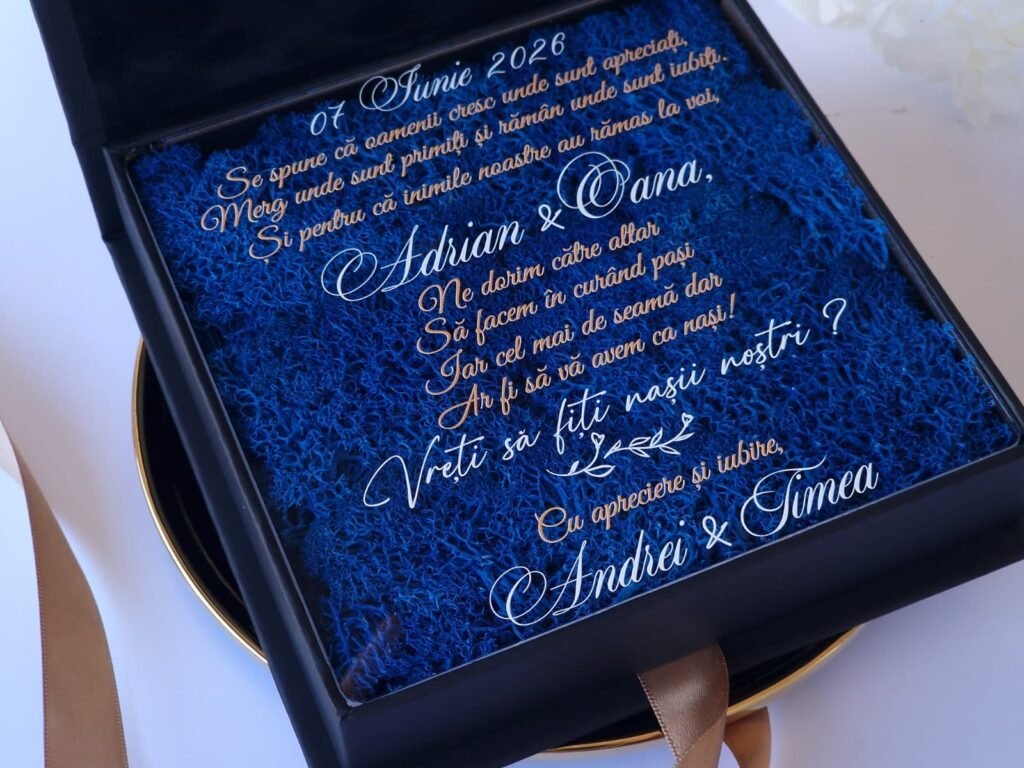 07 Iunie 2026
Se spune că oamenii cresc unde sunt apreciați,
Merg unde sunt primiți și rămân unde sunt iubiți.
Și pentru că inimile noastre au rămas la voi,
Adrian & Oana,
Ne dorim către altar
Să facem în curând pași
Iar cel mai de seamă dar
Ar fi să vă avem ca nași!
Vreți să fiți nașii noștri ?
Cu apreciere și iubire,
Andrei & Timea